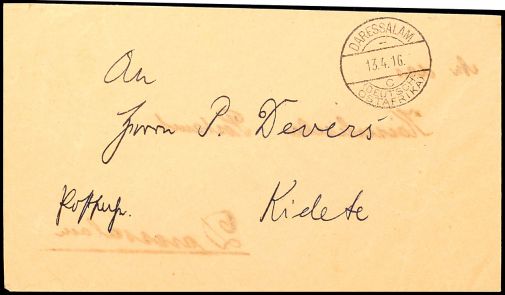 DARESSALAM
13.4.16.
C
(DEUTSCH-
OSTAFRIKA)
An
Herrn P. Devers
Kidete